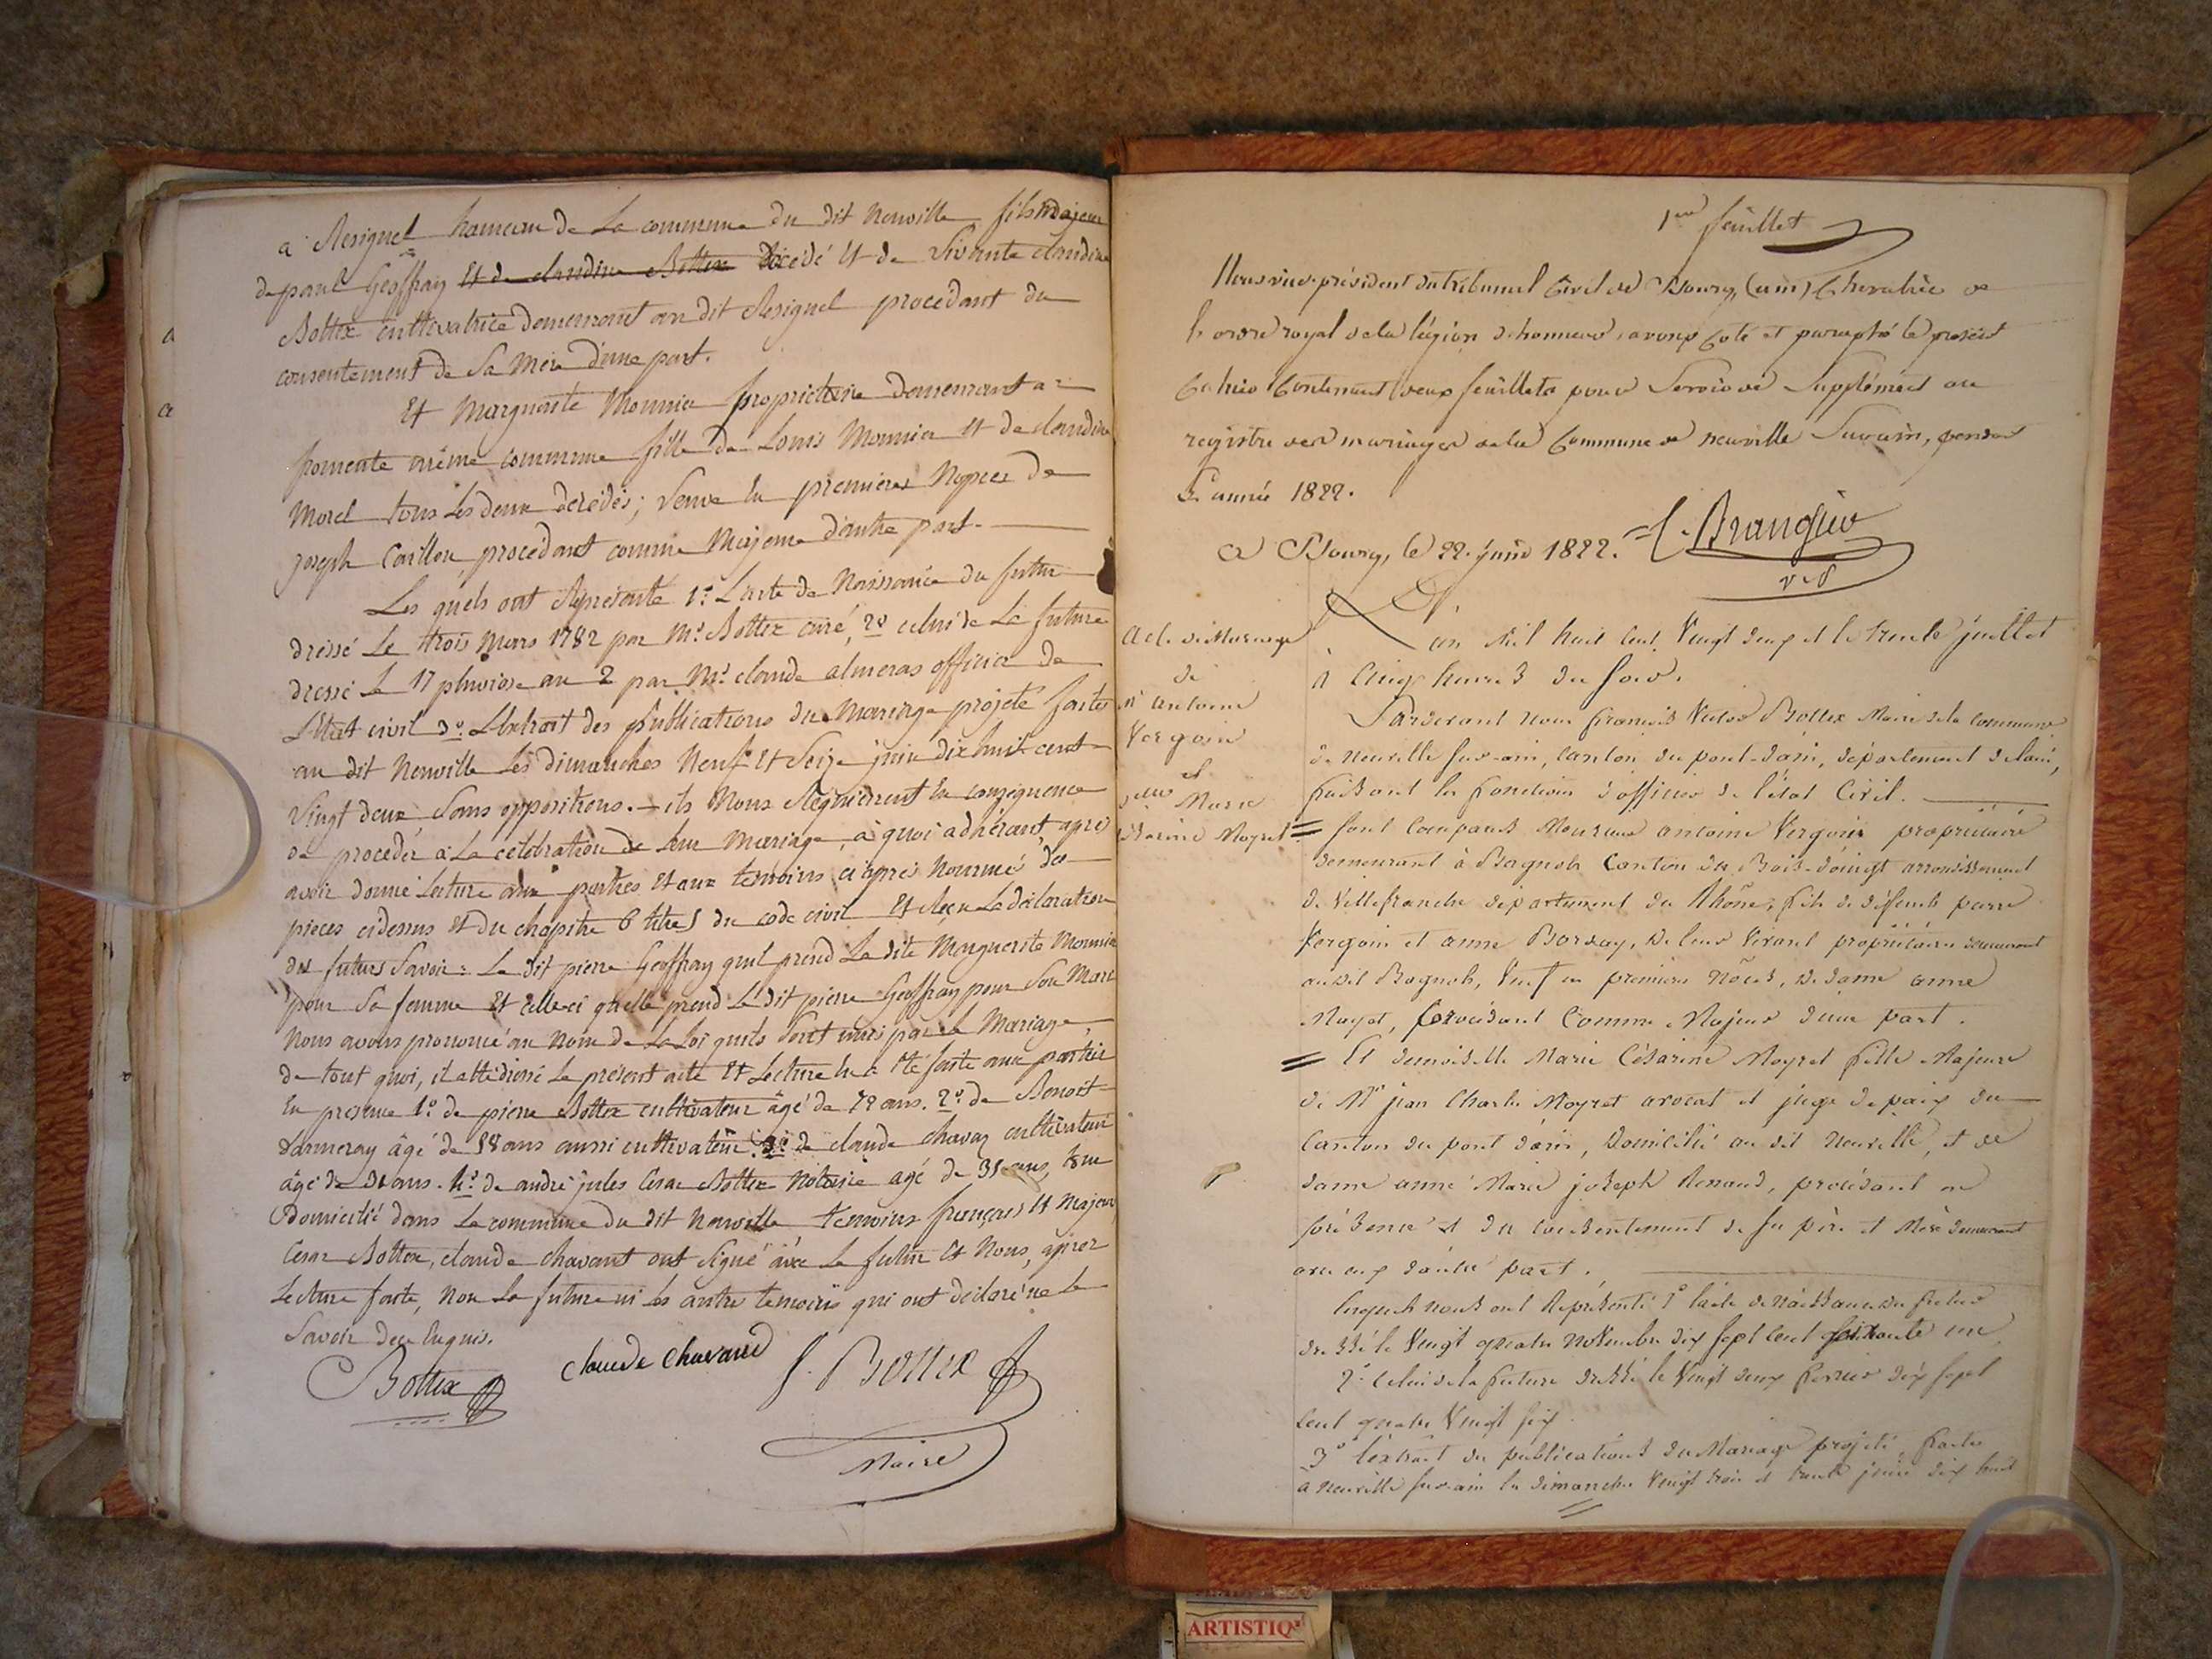 a Resignel hameau de La commune du dit Neuville fils majeur
de paul Geoffray Et de claudine Bottex Décédé Et de Vivante claudine
Bottex cultivatrice demeurant au dit Resignel procedant du
consentement de Sa Mère d'une part.
Et Marguerite Monnier propriétaire demeurant a
fromente même commune fille de Louis Monnier Et de claudine
Morel tous Les deux décédés; Veuve En premieres Nopces de
joseph Caillou, procédant comme Majeure d'autre part.
Les quels ont Représenté 1º L'acte de Naissance du futur
dressé Le trois Mars 1782 par Mr Bottex curé, 2º celui de La future
dressé Le 17 pluviose an 2 par Mr claude almeras officier de
L'Etat civil 3º L'Extrait des publications du Mariage projeté faites
au dit Neuville Les dimanches Neuf Et Seize juin dix huit cent
Vingt deux, Sans oppositions. - ils Nous Réquièrent En conséquence
de proceder à La célébration de leur Mariage, à quoi adhérant, après
avoir donné Lecture aux parties Et aux témoins ci après Nommé des
pieces cidessus Et du chapitre 6 titre 5 du code civil Et Reçu La déclaration
des futurs Savoir: Le dit pierre Geoffray qu'il prend La dite Marguerite Monnier
pour Sa femme Et celle-ci qu'elle prend Le dit pierre Geoffray pour Son Mari
Nous avons prononcé au Nom de La Loi qu'ils Sont unis par Le Mariage,
de tout quoi, il a été dressé Le présent acte Et Lecture En a Eté faite aux parties
En presence 1º de pierre Bottex cultivateur âgé de 72 ans. 2º de Benoit
âgé de 58 ans aussi cultivateur. 3º de claude chavan cultivateur
âgé de ans. 4º de andré jules Cesar Bottex Notaire agé de 35 ans, tous
Domicilié dans La commune du dit Neuville temoins français Et Majeurs
Cesar Bottex, claude chavant ont Signé avec Le futur Et Nous, après
Lecture faite, Non La future ni Les autres temoins qui ont déclaré ne le
Savoir de ce Enquis.
Bottex claude chavand f. Bottex
Maire
1er feuillet
Nous vice-président du tribunal Civil de Bourg, (ain) Chevalier de
l'ordre royal de la légion d'honneur, avons Coté et paraphé le présent
Cahier Contenant deux feuillets pour Servir de Supplément au
registre des mariages de la Commune de neuville Surain, pendant
L'année 1822.
a Bourg, le 22. juin 1822.
Brangier
v.p
Acte de Mariage
de
Mr antoine
Vergoin
et
Delle Marie
Césarine Moyret
L'an Mil huit Cent Vingt deux et le trente juillet
à Cinq heures du Soir.
Pardevant nous françois Victor Bottex Maire de la Commune
de Neuville Sur-ain, Canton du pont-d'ain, département de l'ain,
faisant les fonctions d'officier de l'état Civil.
= Sont Comparus Monsieur antoine Vergoin propriétaire
demeurant à Bagnols Canton du Bois-d'oingt arrondissement
de Villefranche département du Rhône, fils de défunts pierre
Vergoin et anne, De leur Vivant propriétaires demeurant
audit Bagnols, Veuf en premieres nôces, de dame anne
Moyet, procédant Comme Majeur d'une part.
= Et demoiselle Marie Césarine Moyret fille Majeure
de Mr jean Charles Moyret avocat et juge de paix du
Canton du pont d'ain, Domicilié au dit Neuville, et de
dame anne Marie joseph Renaud, procédant en
présence et du Consentement de ses père et Mère demeurant
avec eux d'autre part.
Lesquels nous ont Représenté 1º l'acte de Naissance du futur
dressé le Vingt quatre novembre dix Sept Cent Soixante un
2º Celui de la future dressé le Vingt deux fevrier dix Sept
Cent quatre Vingt Six.
3º l'extrait des publications du Mariage projeté, faites
à Neuville Sur ain les dimanches Vingt trois et trente juin dix huit
=
ARTISTIQ